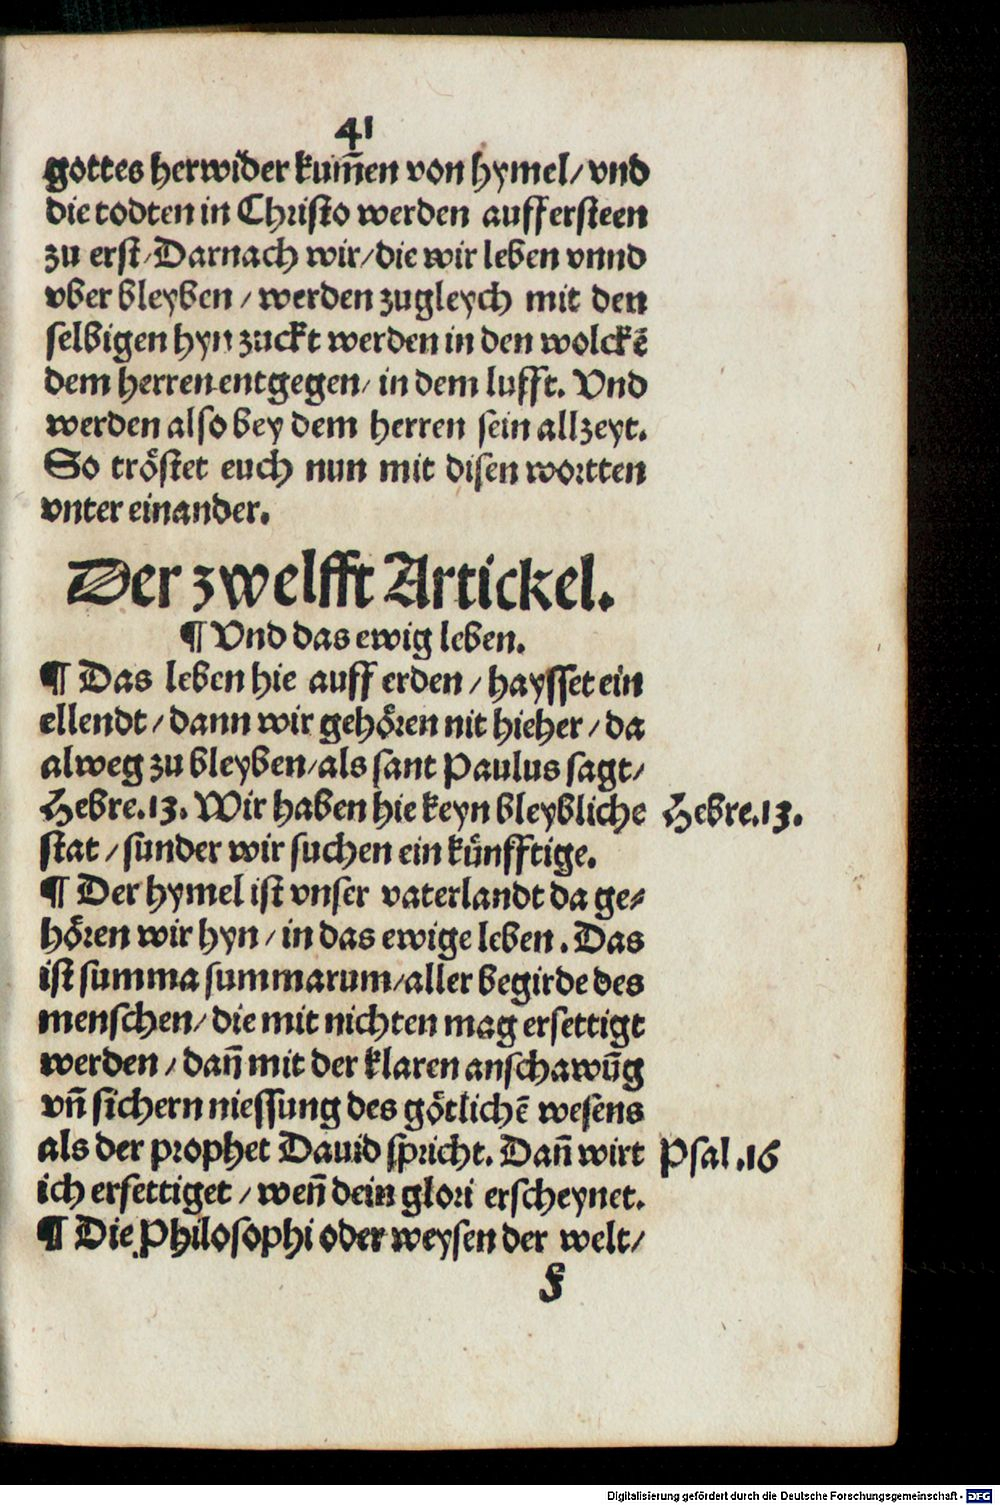 41
gottes herwider kum̃en von hymel/ vnd
die todten in Christo werden auffersteen
zu erst/ Darnach wir/ die wir leben vnnd
vber bleyben / werden zugleych mit den
selbigen hyn zuckt werden in den wolckẽ
dem herren entgegen/ in dem lufft. Vnd
werden also bey dem herren sein allzeyt.
So tröstet euch nun mit disen wortten
vnter einander.
Der zwelfft Artickel.
¶ Vnd das ewig leben.
¶ Das leben hie auff erden / haysset ein
ellendt / dann wir gehören nit hieher / da
alweg zu bleyben/ als sant Paulus sagt/
Hebre.13. Wir haben hie keyn bleybliche Hebre.13.
stat / sunder wir suchen ein künfftige.
¶ Der hymel ist vnser vaterlandt da ge-
hören wir hyn / in das ewige leben . Das
ist summa summarum/ aller begirde des
menschen/ die mit nichten mag ersettigt
werden / dañ mit der klaren anschawũg
vñ sichern niessung des götlichẽ wesens
als der prophet Dauid spricht. Dañ wirt Psal .16
ich ersettiget / weñ dein glori erscheynet.
¶ Die Philosophi oder weysen der welt/
F
Digitalisierung gefördert durch die Deutsche Forschungsgemeinschaft - DFG